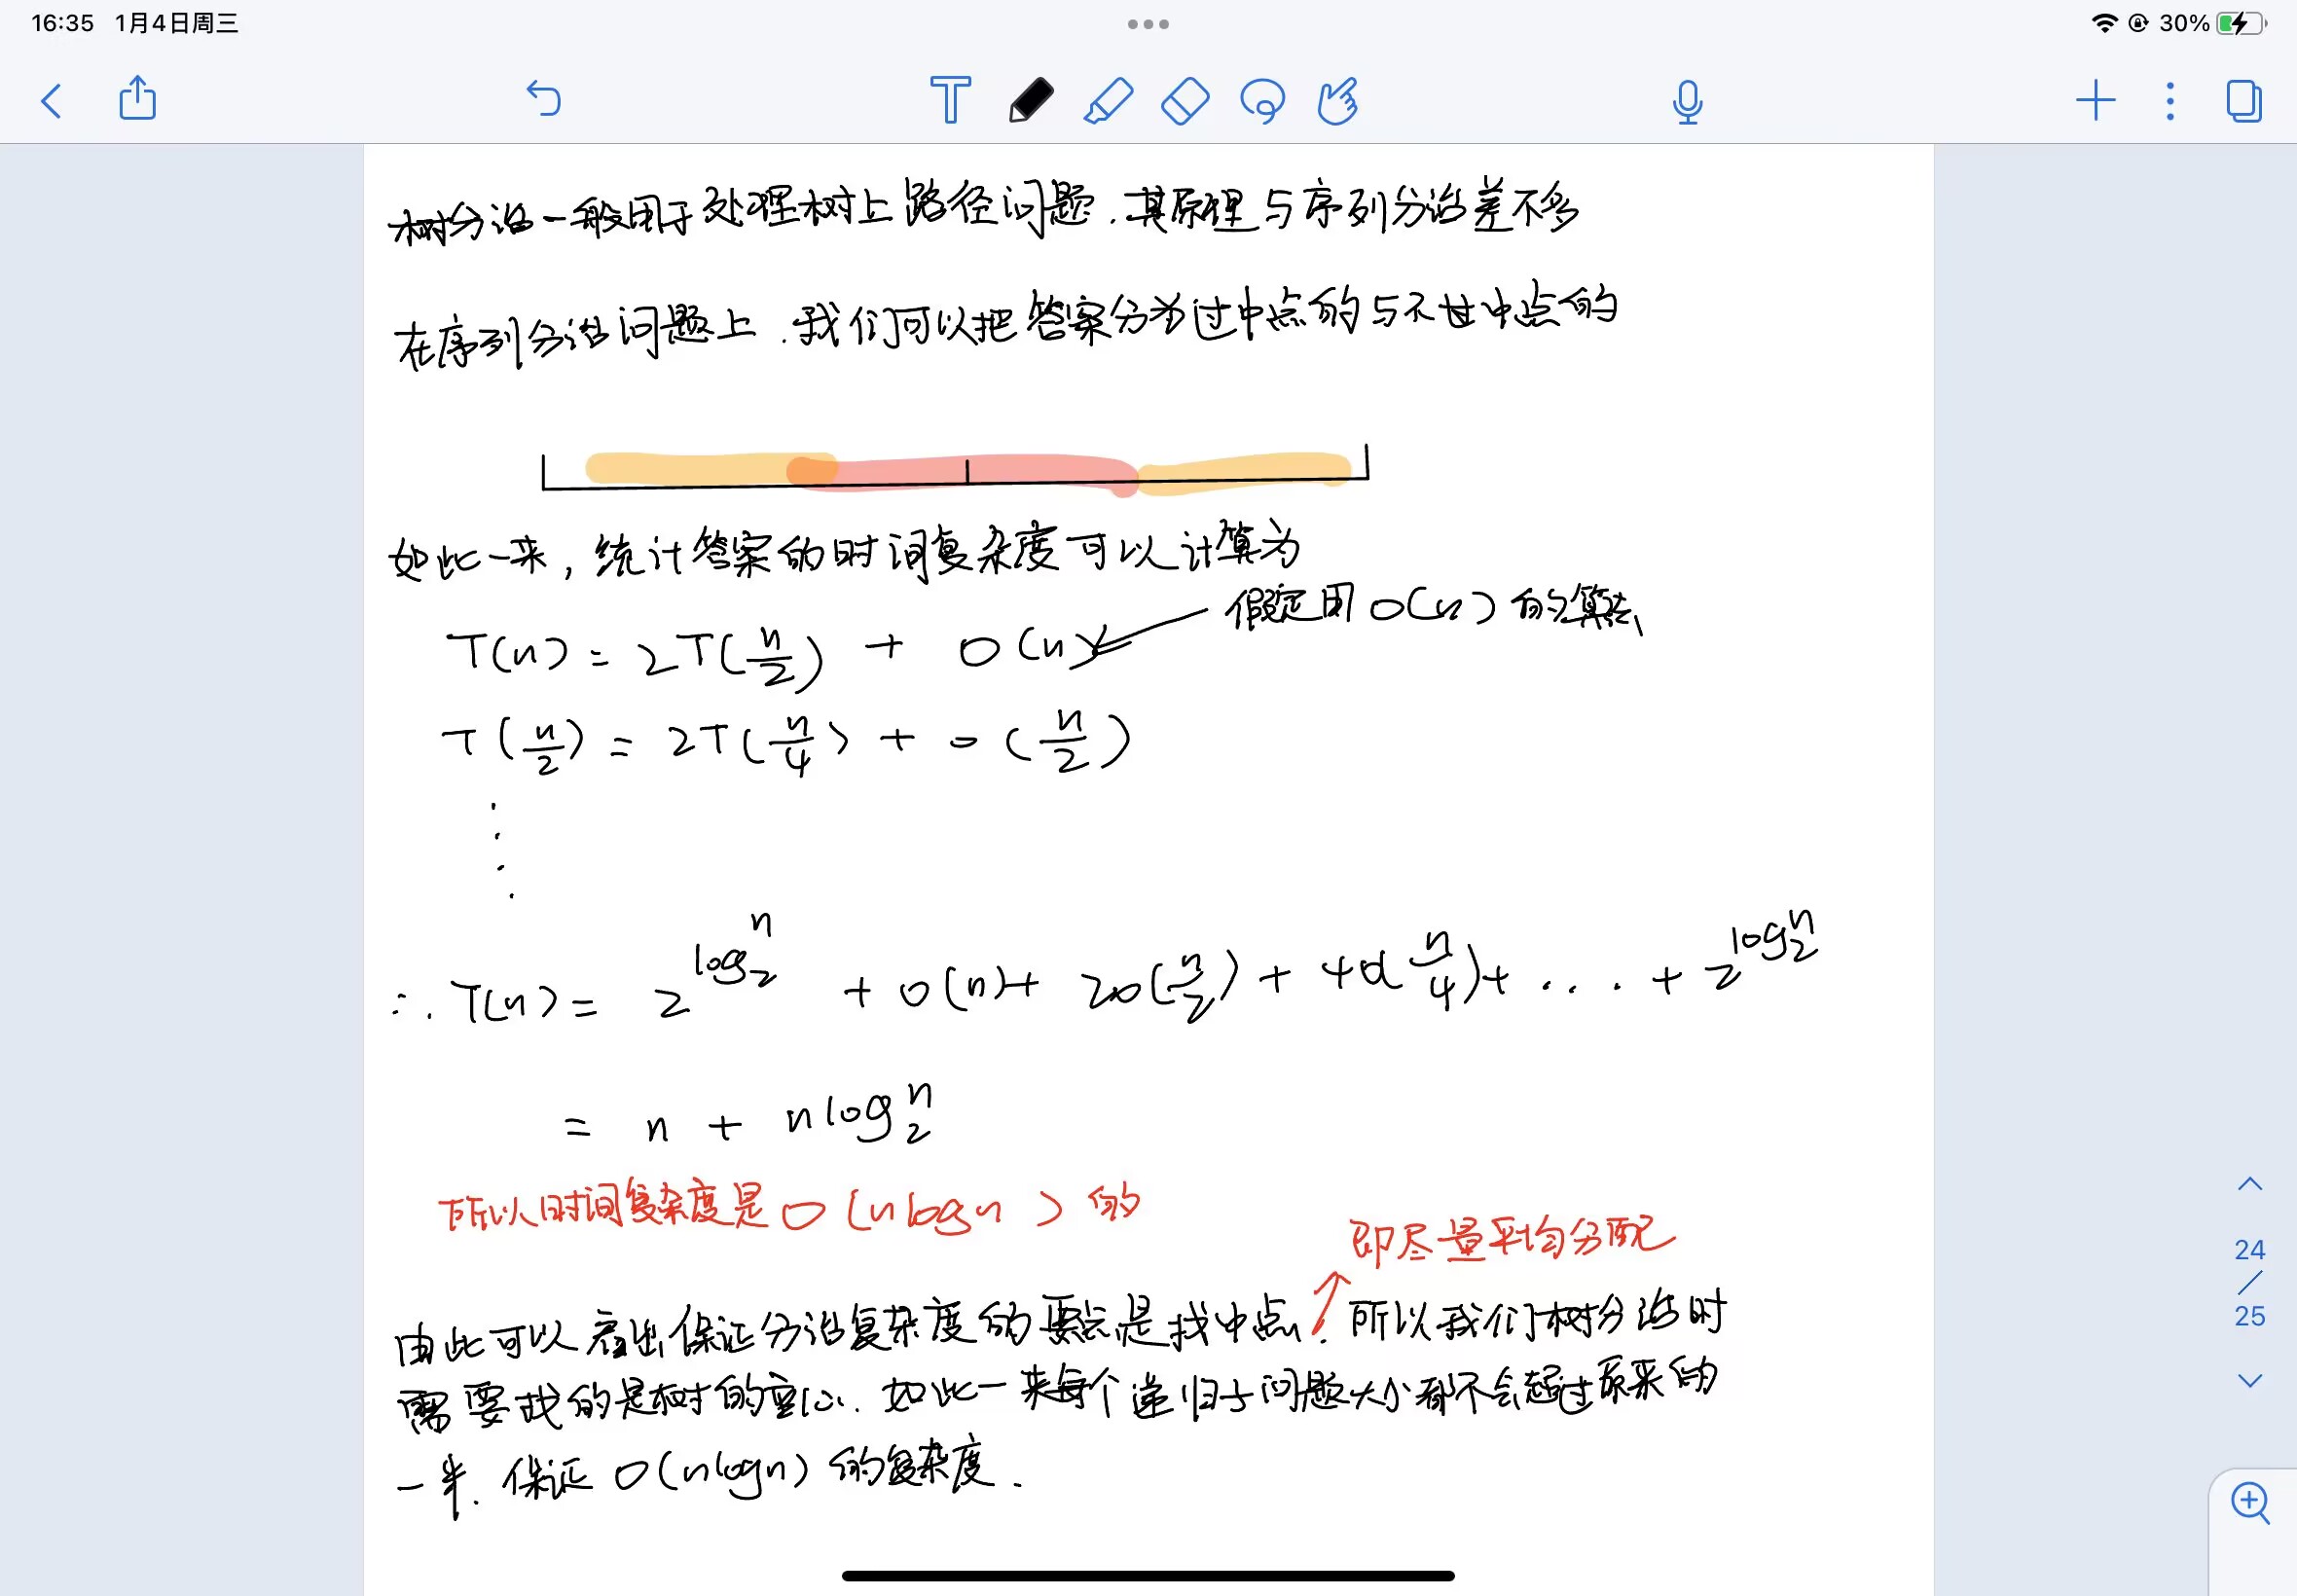 16:35 1月4日周三 30%
树分治一般用于处理树上路径问题.其原理与序列分治差不多
在序列分治问题上.我们可以把答案分为过中点的与不过中点的
如此一来,统计答案的时间复杂度可以计算为
假定用O(n)的算法
T(n) = 2T(n/2) + O(n)
T(n/2) = 2T(n/4) + O(n/2)
∴ T(n) = 2^{log_2^n} + O(n) + 2O(n/2) + 4O(n/4) + ... + 2^{log_2^n}
= n + nlog_2^n
所以时间复杂度是O(nlogn)的
即尽量平均分配
由此可以看出保证分治复杂度的要点是找中点.所以我们树分治时
需要找的是树的重心.如此一来每个递归子问题大小都不会超过原来的
一半.保证O(nlogn)的复杂度.
24
/
25